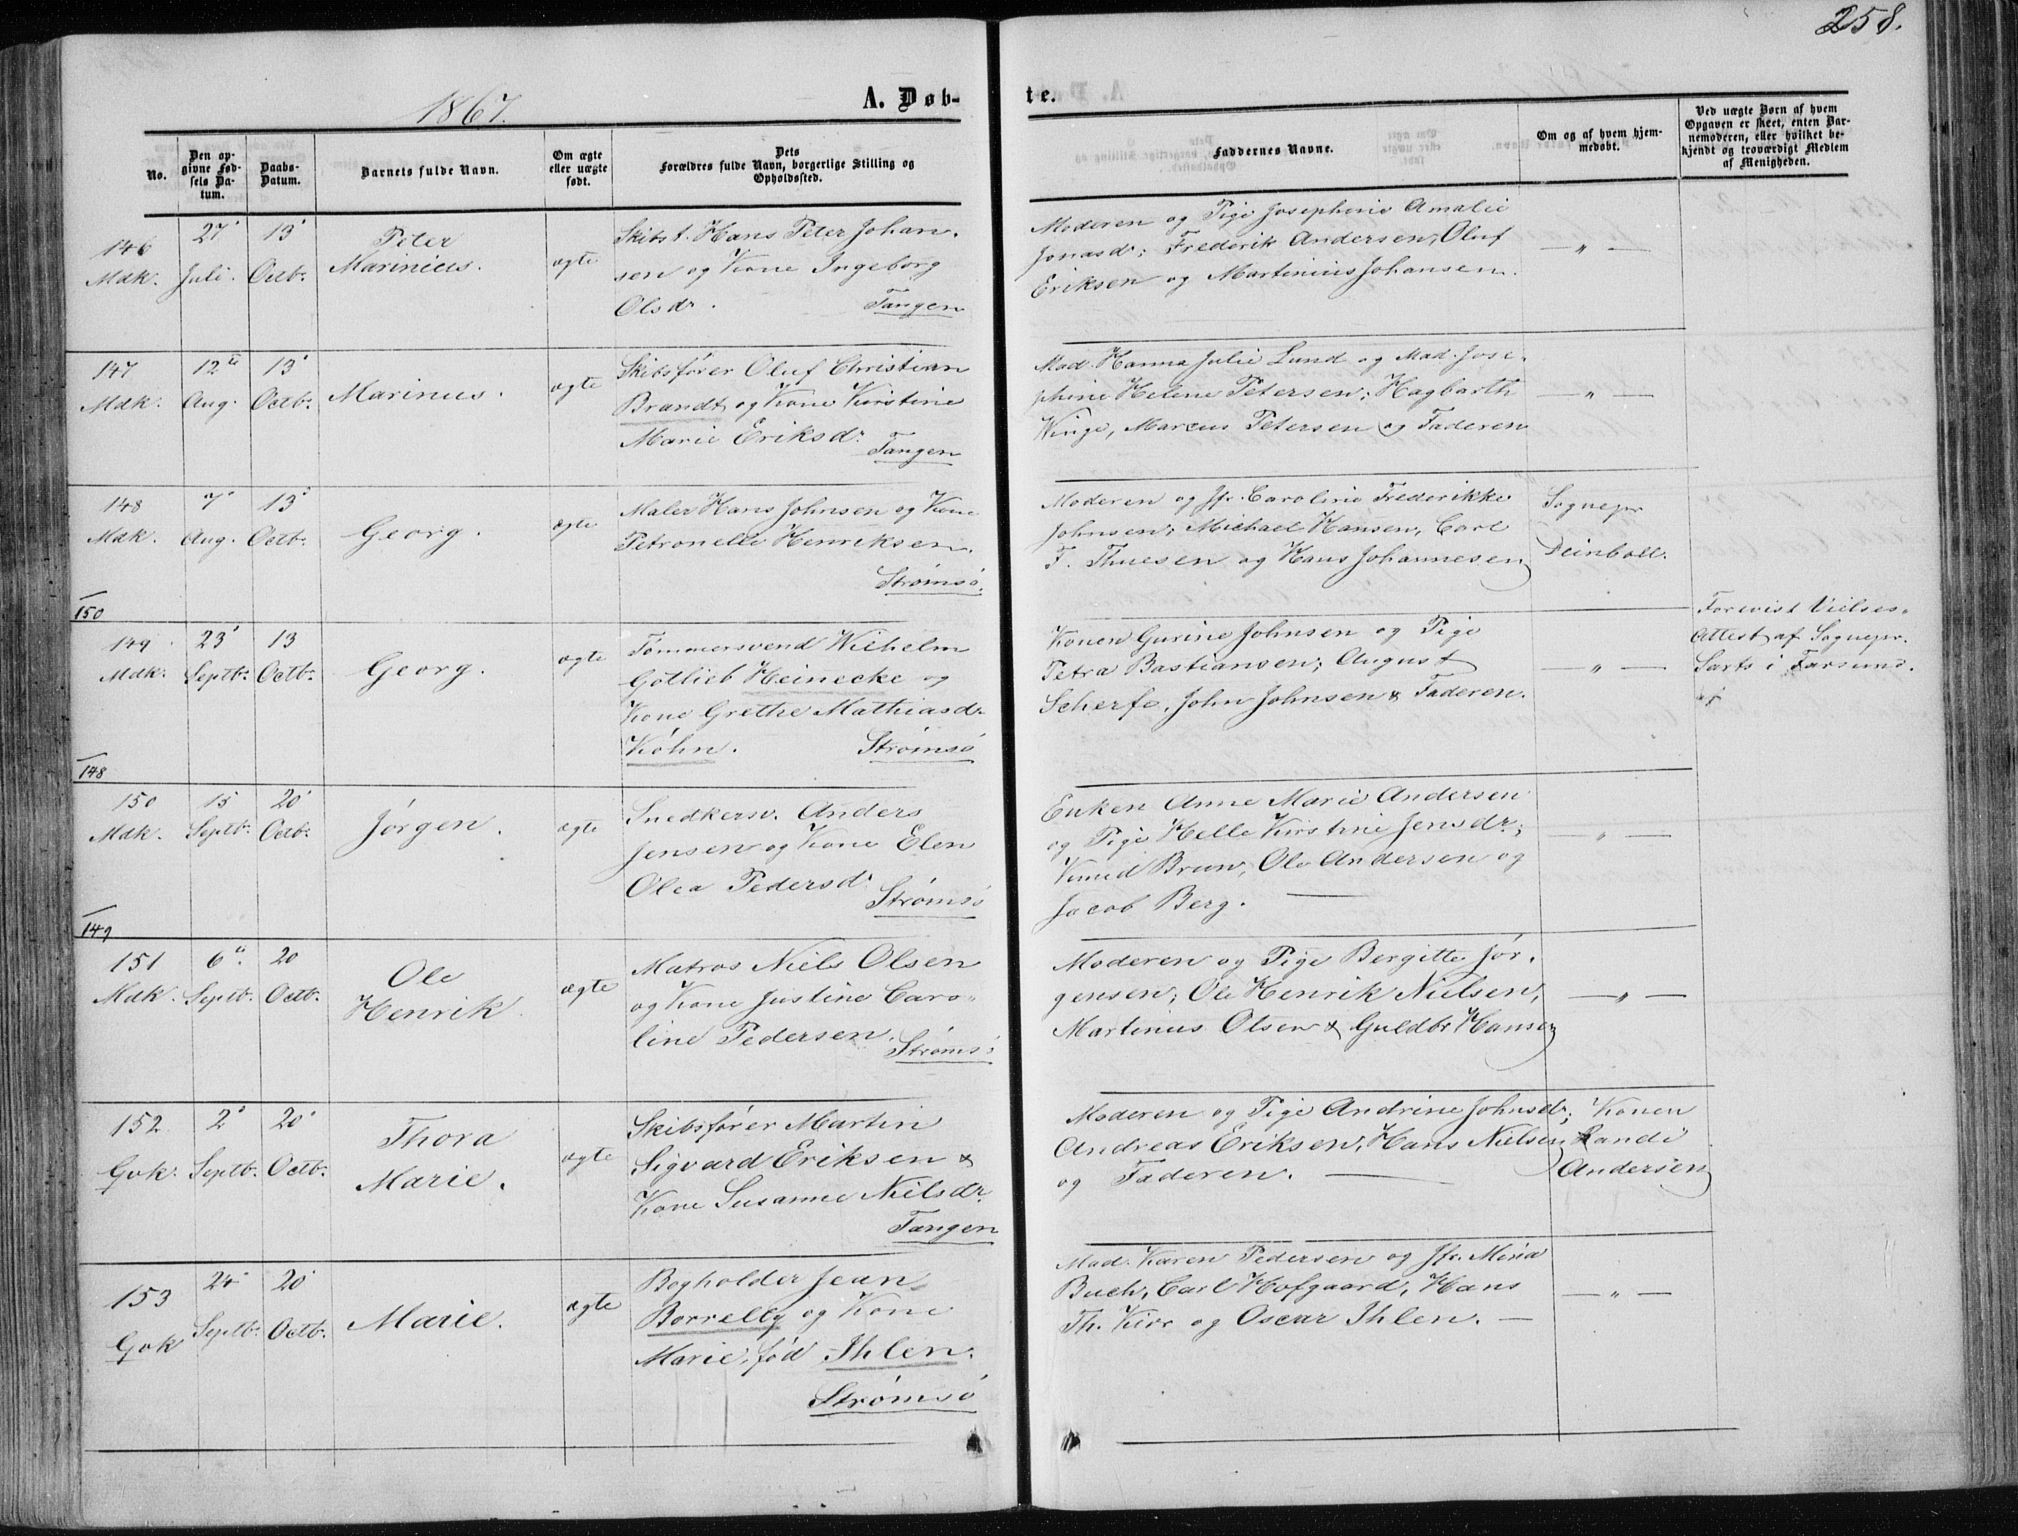 258.
1867.
A. Døb-
te.
No.
Den op-
givne Fød-
sels Da-
tum.
Daabs-
Datum.
Barnets fulde Navn.
Om ægte
eller uægte
født.
Dets
Forældres fulde Navn, borgerlige Stilling og
Opholdssted.
Faddernes Navne.
Om og af hvem hjem-
medøbt.
Ved uægte Børn af hvem
Opgaven er skeet, enten Bar-
nemoderen, eller hvilket be-
kjendt og troværdigt Medlem
af Menigheden.
146
Mdk.
27'
Juli.
13'
Octb.
Peter
Marinius.
ægte
Skibst. Hans Peter Johan-
sen og Kone Ingeborg
Olsdr.
Tangen
Moderen og Pige Josephine Amalie
Jonasdr; Frederik Andersen, Oluf
Eriksen og Martinius Johansen.
— „ —
147
Mdk.
12te
Aug.
13'
Octb.
Marinus.
ægte
Skibsfører Oluf Christian
Brandt og Kone Kirstine
Marie Eriksdr.
Tangen
Mad. Hanna Julie Lund og Mad. Jose-
phine Helene Petersen; Hagbarth
Winge, Marcus Petersen og Faderen
— „ —
148
Mdk.
7'
Aug.
13'
Octb.
Georg.
ægte
Maler Hans Johnsen og Kone
Petronelle Henriksen.
Strømsø.
Moderen og Jfr. Caroline Frederikke
Johnsen; Michael Hansen, Carl
F. Thuesen og Hans Johannesen
Sognepr
Deinboll.
150
149
Mdk.
23'
Septb.
13
Octb.
Georg.
ægte
Tømmersvend Wilhelm
Gotlieb Heinecke og
Kone Grethe Mathiasdr
Köhn.
Strømsø
Konen Gurine Johnsen og Pige
Petra Bastiansen; August
Scherfe, John Johnsen & Faderen.
— „ —
Forevist Vielses-
attest af Sognepr.
Sarts i Farsund.
148
150
Mdk.
15
Septb.
20'
Octb.
Jørgen.
ægte
Snedkersv. Anders
Jensen og Kone Elen
Olea Pedersdr
Strømsø
Enken Anne Marie Andersen
og Pige Helle Kirstine Jensdr;
Knud Brun, Ole Andersen og
Jacob Berg. —
„ —
149
151
Mdk.
6te
Septb.
20
Octb.
Ole
Henrik.
ægte
Matros Niels Olsen
og Kone Justine Caro-
line Pedersen.
Strømsø
Moderen og Pige Bergitte Jør-
gensen; Ole Henrik Nielsen,
Martinius Olsen & Guldbr Hansen
— „ —
152
Gvk.
2'
Septb.
20'
Octb.
Thora
Marie.
ægte
Skibsfører Martin
Sigvard Eriksen &
Kone Susanne Nielsdr
Tangen
Moderen og Pige Andrine Johnsdr;
Andreas Eriksen, Hans Nielsen
og Faderen. —
Konen
Randi
Andersen
153
Gvk
24
Septb.
20'
Octb.
Marie.
ægte
Bogholder Jean
Borrelly og Kone
Marie, fød Ihlen.
Strømsø
Mad. Karen Pedersen og Jfr. Mina
Buch, Carl Hofgaard, Hans
Th. Kiær og Oscar Ihlen. —
— „ —